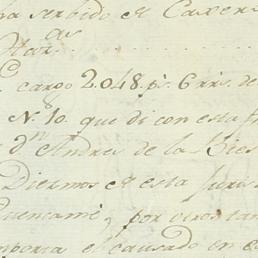 ha serbido el Caxer
as
cargo 2.048 ps. 6 rrs. de
N. 10. que di con esta f
dn. Andres de la Yies
Diezmos en esta Juris
Cuencamé, por otros tan
mporta el causado en e